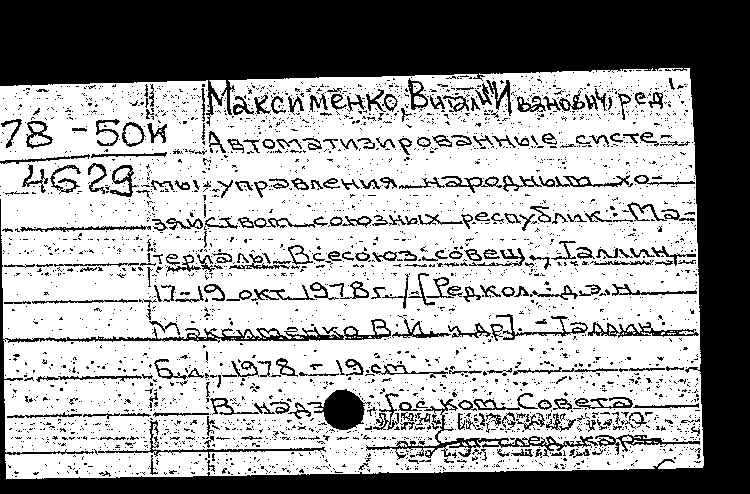 Максименко, Виталий Иванович, ред.
78-50к
Автоматизированные систе-
4629
мы управления народным хо-
зяйством союзных республик: Ма-
териалы Всесоюз. совещ., Таллин,
17-19 окт. 1978 г. / [Редкол.: д.э.н.
Максименко В.И. и др]. - Таллин:
Б.и., 1978. - 19 см
В надз Гос. ком. Совета
См. след. карт.